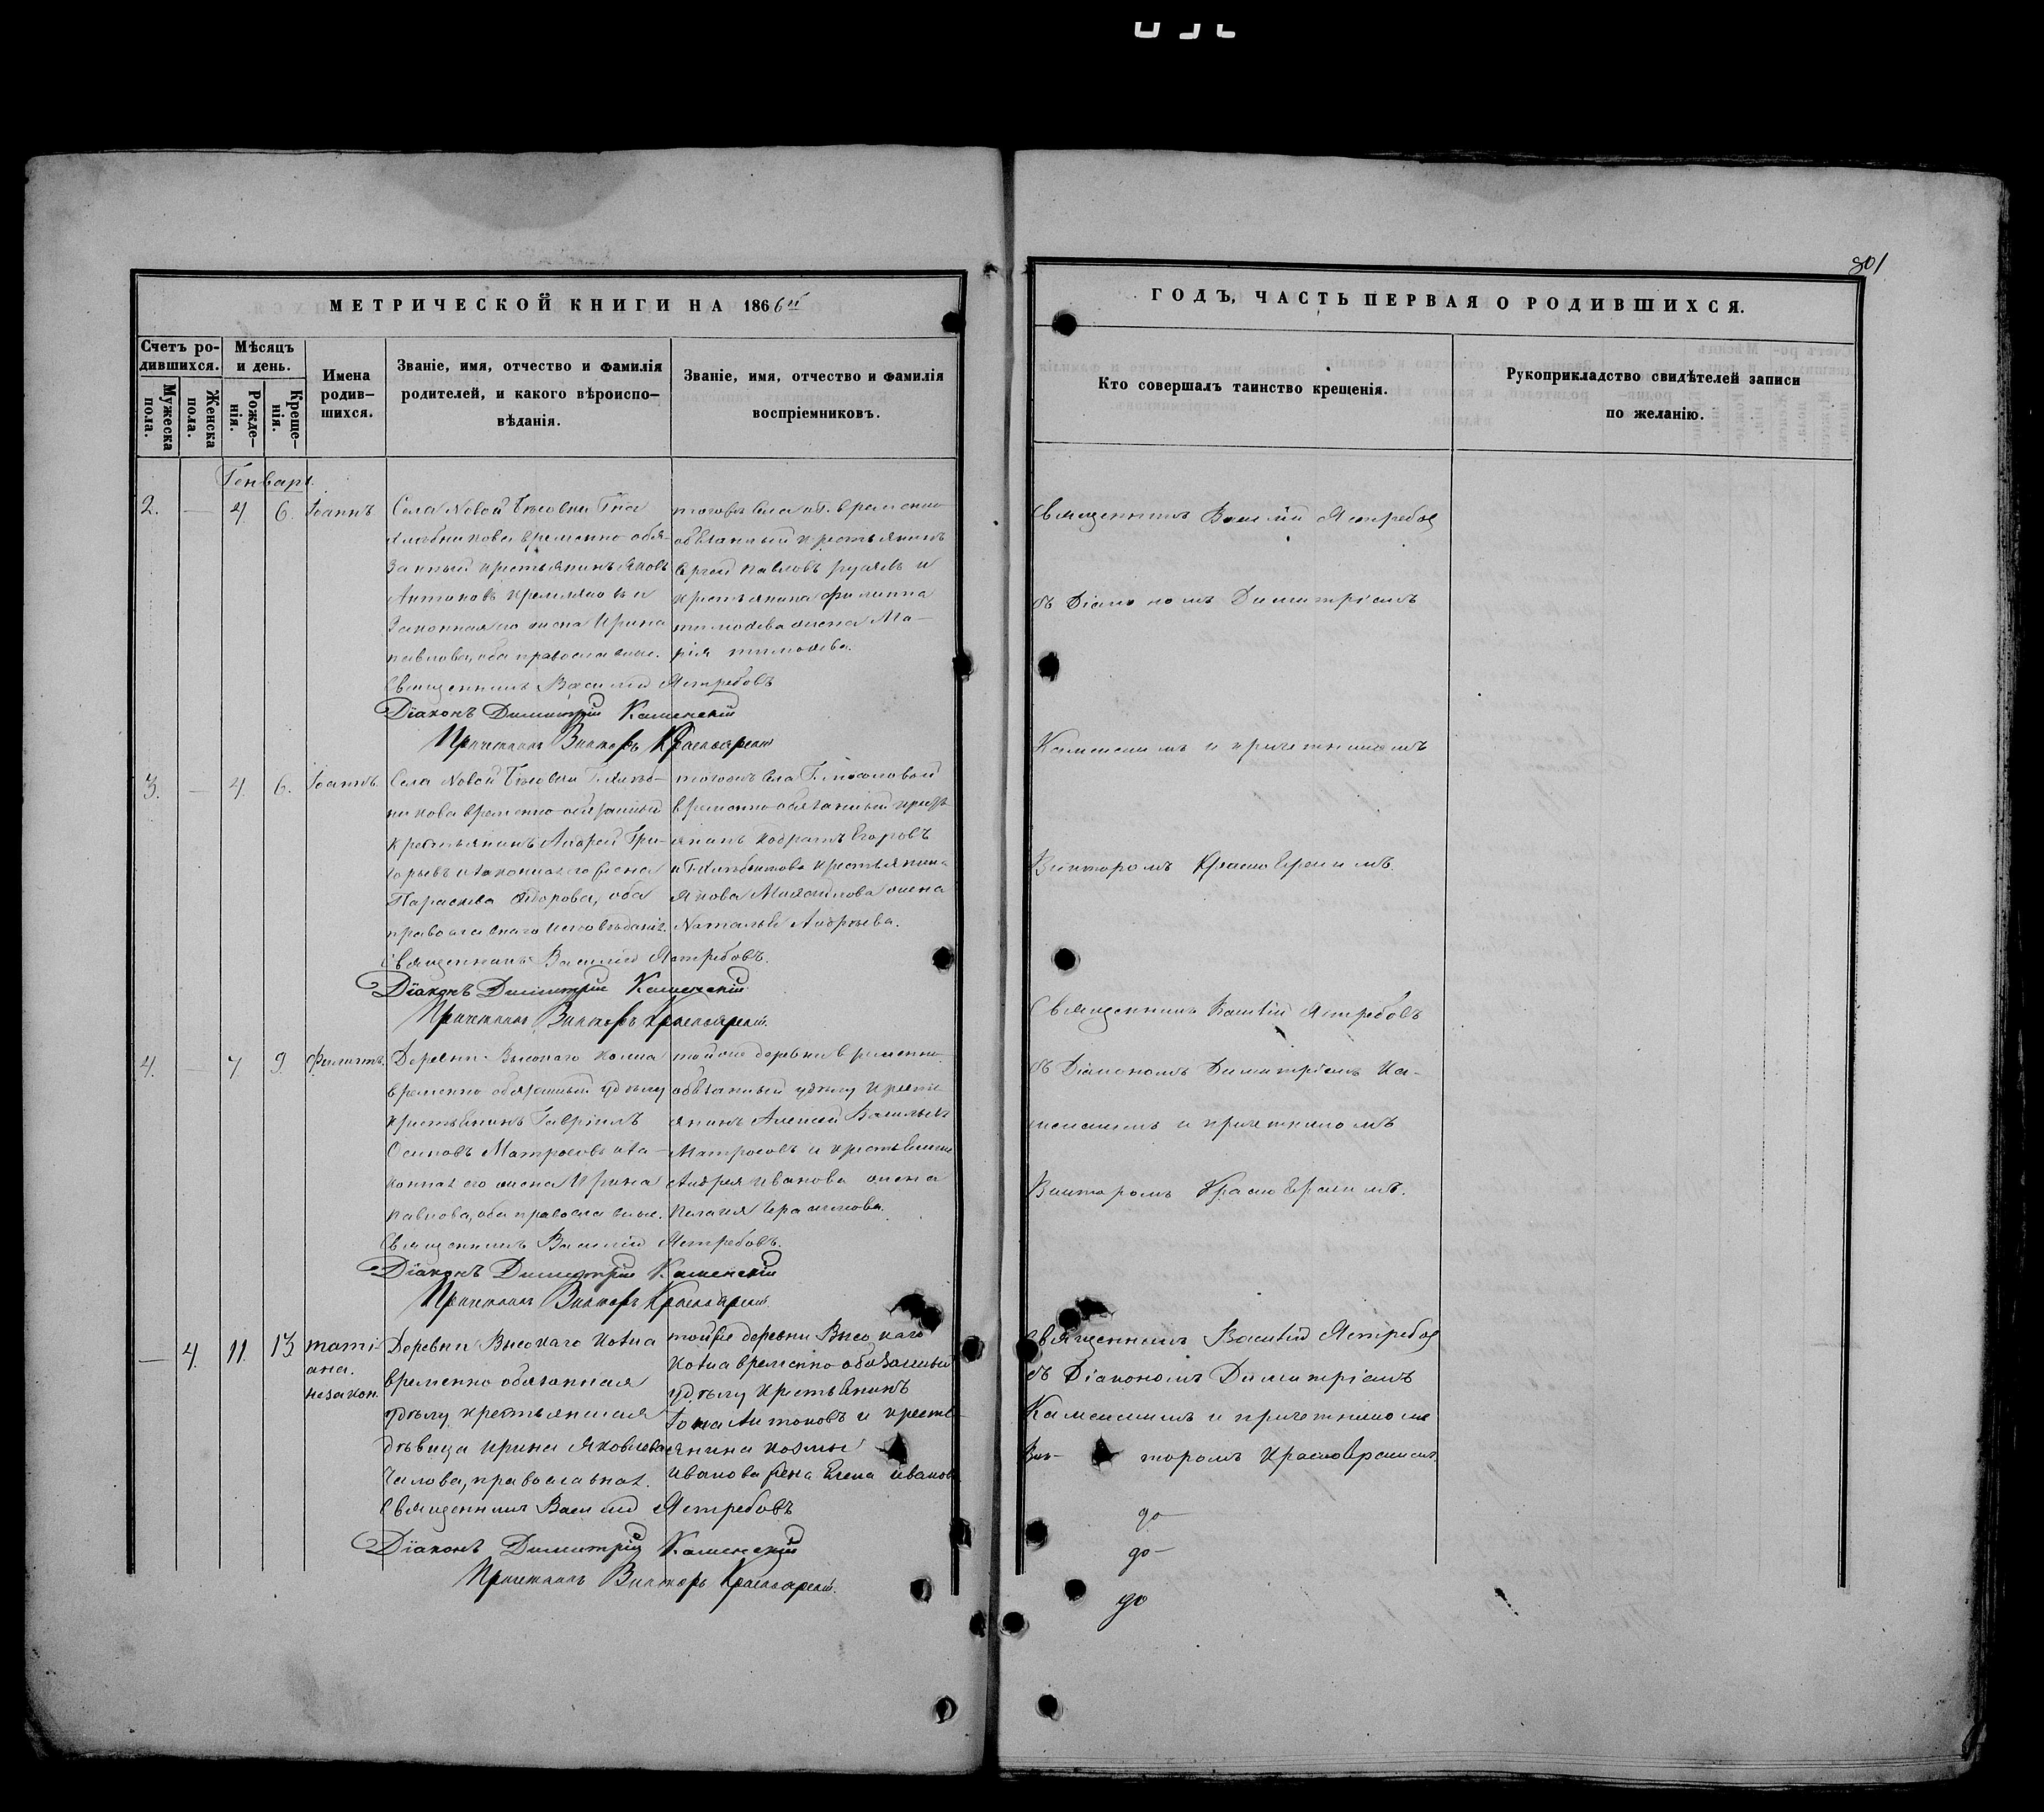 801
МЕТРИЧЕСКОЙ КНИГИ НА 1866й
ГОДЪ, ЧАСТЬ ПЕРВАЯ О РОДИВШИХСЯ.
Счетъ родившихся.
Мужеска пола.
Женска пола.
Мѣсяцъ и день.
Рожденія.
Крещенія.
Имена родившихся.
Званіе, имя, отчество и фамилія родителей, и какого вѣроисповѣданія.
Званіе, имя, отчество и фамилія воспріемниковъ.
Кто совершалъ таинство крещенія.
Рукоприкладство свидѣтелей записи по желанію.
Генварь
2. — 4. 6. Іоаннъ
Села Новой
временно обя-
занный крестьянинъ Яковъ
Антоновъ и
законная его жена Ирина
Павлова, оба православные.
тогожъ села временно
обязанный крестьянинъ
Павловъ и
крестьянина Филиппа
Тимофеева жена Ма-
рія Тимофева.
Священникъ Василій Ястребовъ
Діаконъ Димитрій Каменскій
Причетникъ Викторъ
Священникъ Василій Ястребов
съ Діакономъ Димитріемъ
Каменскимъ и причетникомъ
Викторомъ
3. — 4. 6. Іоаннъ
Села Новой
временно обязанный
крестьянинъ Андрей Гри-
горьевъ и законная его жена
Параскева Федорова, оба
православнаго исповѣданія.
тогожъ села
временно обязанный крест-
янинъ Егоровъ
крестьянина
Якова жена
Наталья Андреева.
Священникъ Василій Ястребовъ.
Діаконъ Димитрій Каменскій
Причетникъ Викторъ
Священникъ Василій Ястребовъ
съ Діакономъ Димитріемъ Ка-
менскимъ и причетникомъ
Викторомъ
4. — 7 9. Филиппъ.
Деревни Высокаго
временно обязанный удѣлу
крестьянинъ Гавріилъ
Осиповъ Матросовъ и за-
конная его жена Ирина
Павлова, оба православные.
тойже деревни временно
обязанный удѣлу крестя
янинъ Алексей Васильевъ
Матросовъ и крестьянина
Андрея Иванова жена
Пелагія Герасимова.
Священникъ Василій Ястребовъ.
Діаконъ Димитрій Каменскій
Причетникъ Викторъ
— 4. 11. 13.
Тати-
ана.
незакон.
Деревни Высокаго
временно обязанная
удѣлу крестьянская
дѣвица Ирина Яковлева
православная.
тойже деревни Высокаго
временно обязанный
удѣлу крестьянинъ
Антоновъ и крест-
янина Козмы
Иванова жена Елена Иванов
Священникъ Василій Ястребовъ
Діаконъ Димитрій Каменскій
Причетникъ Викторъ
Священникъ Василій Ястребов
съ Діакономъ Димитріемъ
Каменскимъ и причетникомъ
Вик- торомъ
до
до
до